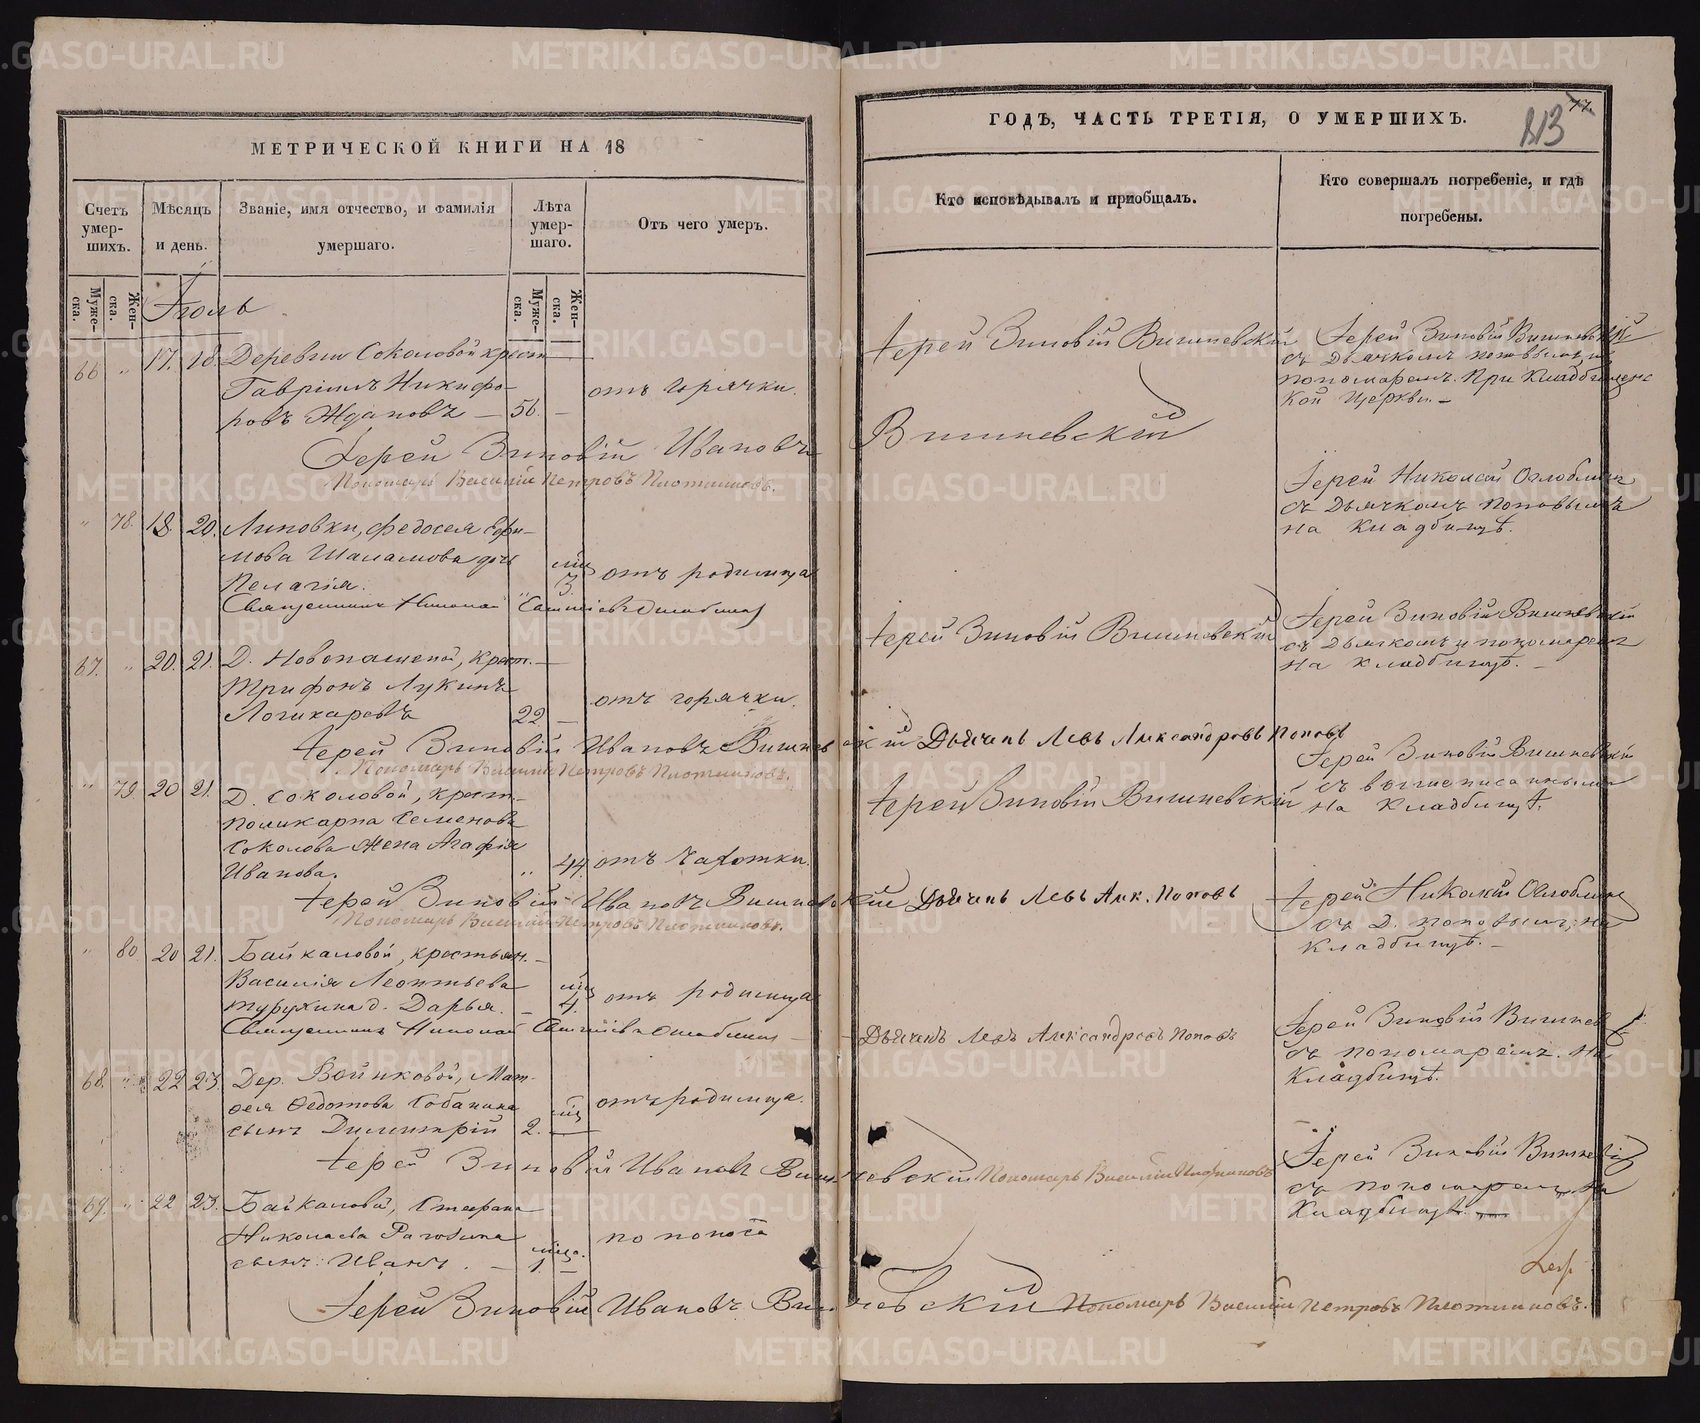 МЕТРИЧЕСКОЙ КНИГИ НА 18
Счетъ умер-шихъ.
Мѣсяцъ и день.
Званіе, имя отчество, и фамилія умершаго.
Лѣта умер-шаго.
Отъ чего умеръ.
Муже-ска.
Жен-ска.
Муже-ска.
Жен-ска.
Іюль
66 " 17. 18. Деревни Соколовой крест.
Гавріилъ Никифо-
ровъ Ждановъ — 56. — отъ горячки.
Іерей Зиновій Ивановъ
Пономарь Василій Петровъ Плотниковъ.
" 78. 18. 20. Липовки, Федосея Ефи-
мова Шаламова дочь
Пелагія. " 3. отъ родимца
Священникъ Николай Оглоблинъ
67. " 20. 21. Д. Новопашеной, крест.
Трифонъ Лукинъ
22 — отъ горячки.
Іерей Зиновій Ивановъ Вишнев
Пономарь Василій Петровъ Плотниковъ.
" 79. 20 21. Д. Соколовой, крест.
Поликарпа Семенова
Соколова жена Агафія
Иванова. " 44. отъ чахотки.
Іерей Зиновій Ивановъ Вишнев
Пономарь Василій Петровъ Плотниковъ.
" 80. 20 21. Байкаловой, крестьян.
Василія Леонтьева
д. Дарья. — 4. отъ родимца
Священникъ Николай Оглоблинъ
68. " 22 23 Дер. Воинковой, Мат-
фея Федотова Собанина
сынъ Димитрій 2. — отъ родимца.
Іерей Зиновій Ивановъ Виш
69. " 22 23. Байкаловой, Стефана
Николаева
сынъ: Иванъ. — 1. — по поноса
Іерей Зиновій Ивановъ Виш
ГОДЪ, ЧАСТЬ ТРЕТІЯ, О УМЕРШИХЪ.
113
77.
Кто исповѣдывалъ и приобщалъ.
Кто совершалъ погребеніе, и гдѣ погребены.
Іерей Зиновій Вишневскій
Іерей Зиновій Вишневскій
съ Дьячкомъ Поповымъ и
пономаремъ. При Кладбищенс
кой Церкви. —
Вишневскій
Іерей Николай Оглоблинъ
съ Дьячкомъ Поповымъ
на кладбищѣ.
Іерей Зиновій Вишневскій
Іерей Зиновій Вишневскій
съ Дьячкомъ и пономаремъ
на кладбищѣ. —
скій Дьячекъ Левъ Александровъ Поповъ
Іерей Зиновій Вишневскій
Іерей Зиновій Вишневскій
съ вышеписанными
на кладбищѣ.
скій Дьячекъ Левъ Алк. Поповъ
Іерей Николай Оглоблинъ
съ Д. Поповымъ, на
кладбищѣ. —
Дьячекъ Левъ Александровъ Поповъ
Іерей Зиновій Вишнев
съ пономаремъ. На
Кладбищѣ.
невскій Пономарь Василій Плотниковъ
Іерей Зиновій Вишневскій
съ пономаремъ на
Кладбищѣ.
невскій Пономарь Василій Петровъ Плотниковъ.
METRIKI.GASO-URAL.RU